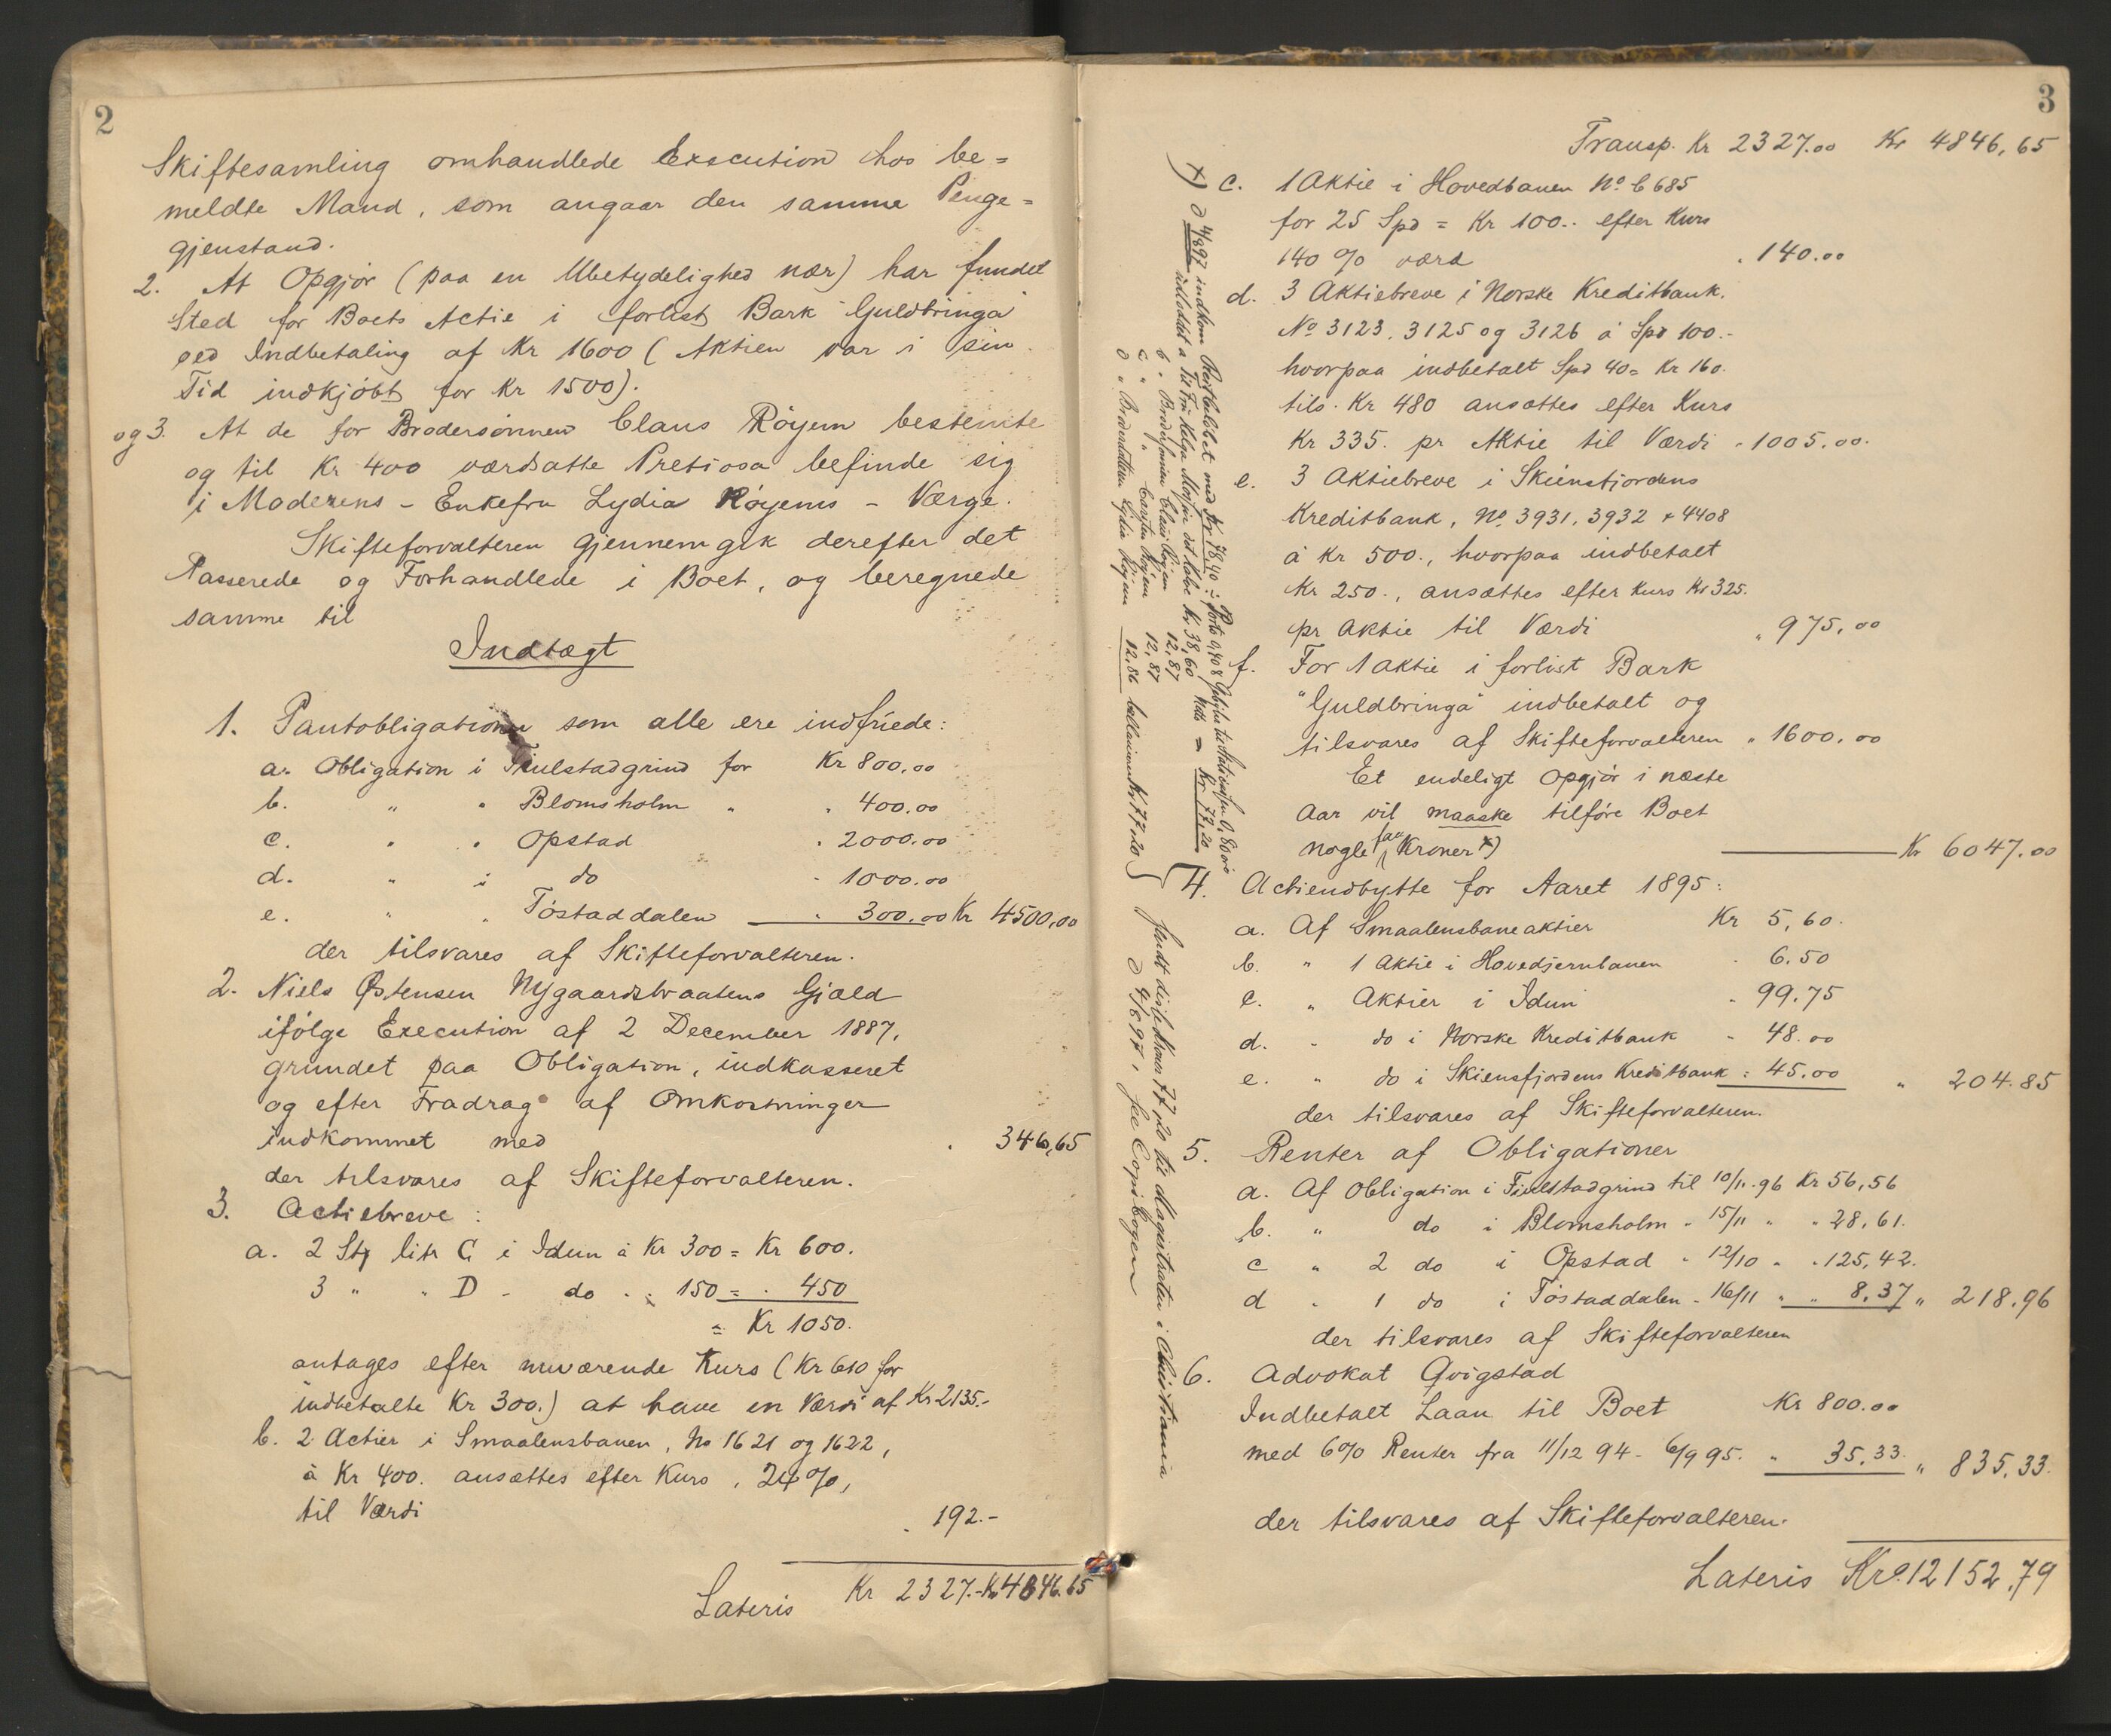 2
Skiftesamling omhandlede Execution hos be=
meldte Mand, som angaar den samme Penge=
gjenstand.
2. At Opgjør (paa en Ubetydelighed nær) har fundet
Sted for Boets Actie i forlist Bark "Guldbringa"
ved Indbetaling af Kr 1600 (Aktien var i sin
Tid indkjøbt for Kr 1500).
og 3. At de for Brodersønnen Claus Röyem bestemte
og til Kr 400 værdsatte Pretiosa befinde sig
i Moderens - Enkefru Lydia Röyems - Værge.
Skifteforvalteren gjennemgik derefter det
Passerede og Forhandlede i Boet, og beregnede
samme til
Indtægt
1. Pantobligationer som alle ere indfriede:
a. Obligation i Fiulstadgrind for Kr 800,00
b. " " Blomsholm " " 400.00
c. " " Opstad " 2000.00
d. " i do " 1000.00
e. " " Töstaddalen " 300.00 Kr 4500,00
der tilsvares af Skifteforvalteren.
2. Niels Østensen Nygaardsbraatens Gjæld
ifölge Execution af 2 December 1887,
grundet paa Obligation, indkasseret
og efter Fradrag af Omkostninger
indkommet med " 346,65
der tilsvares af Skifteforvalteren.
3. Actiebreve:
a. 2 Stk litr C i Idun à Kr 300 = Kr 600.
3 " " D - do " " 150 = " 450
= Kr 1050.
antages efter nuværende Kurs (Kr 610 for
indbetalte Kr 300.) at have en Værdi af Kr 2135.-
b. 2 Actier i Smaalensbanen, No 1621 og 1622,
à Kr 400. ansættes efter Kurs, 24%,
til Værdi " 192.-
Lateris Kr 2327.- Kr 4846.65
3
Transp. Kr 2327.00 Kr 4846,65
c. 1 Aktie i Hovedbanen No C 685
for 25 Spd = Kr 100.. efter Kurs
140 % værd " 140.00
d. 3 Aktiebreve i Norske Kreditbank.
No 3123, 3125 og 3126 à Spd 100.-
hvorpaa indbetalt Spd 40 = Kr 160.
tils. Kr 480 ansættes efter Kurs
Kr 335. pr Aktie til Værdi " 1005.00.
e. 3 Aktiebreve i Skiensfjordens
Kreditbank, No 3931, 3932 + 4408
à Kr 500., hvorpaa indbetalt
Kr 250., ansættes efter Kurs Kr 325.
pr Aktie til Værdi " 975,00
f. For 1 Aktie i forlist Bark
"Guldbringa" indbetalt og
tilsvares af Skifteforvalteren " 1600.00
Et endeligt Opgjör i næste
Aar vil maaske tilføre Boet
nogle faa Kroner x) Kr 6047.00
4. Actieudbytte for Aaret 1895:
a. Af Smaalensbaneaktier Kr 5,60.
b. " 1 Aktie i Hovedjernbanen " 6.50
c. " Aktier i Idun " 99.75
d. " do i Norske Kreditbank " 48.00
e. " do i Skiensfjordens Kreditbank : 45.00 " 204.85
der tilsvares af Skifteforvalteren.
5. Renter af Obligationer
a. Af Obligation i Fiulstadgrind til 10/11.96 Kr 56,56
b. " do i Blomsholm " 15/11 " " 28,61.
c " 2 do i Opstad " 12/10 " " 125,42.
d " 1 do i Töstaddalen " 16/11 " " 8.37 " 218.96
der tilsvares af Skifteforvalteren
6. Advokat Qvigstad
Indbetalt Laan til Boet Kr 800.00
med 6% Renter fra 11/12 94 - 6/9 95. " 35.33. " 835.33.
der tilsvares af Skifteforvalteren.
Lateris Kr. 12152,79
x) d 4/8 97 indkom Restbeløbet med Kr 78.40 : Porto 0,40
udloddet a Til Fru Helga det halve Kr. 38,60
b " Brodersønnen Claus Röyem 12,87
c " " Carsten Röyem 12,87
d " Broderdatteren Lydia Röyem 12.86 tilsammen Kr 77.20
sendt Kroner 77,20 til Magistraten i Christiania
d 4/8 97, se Copibogen